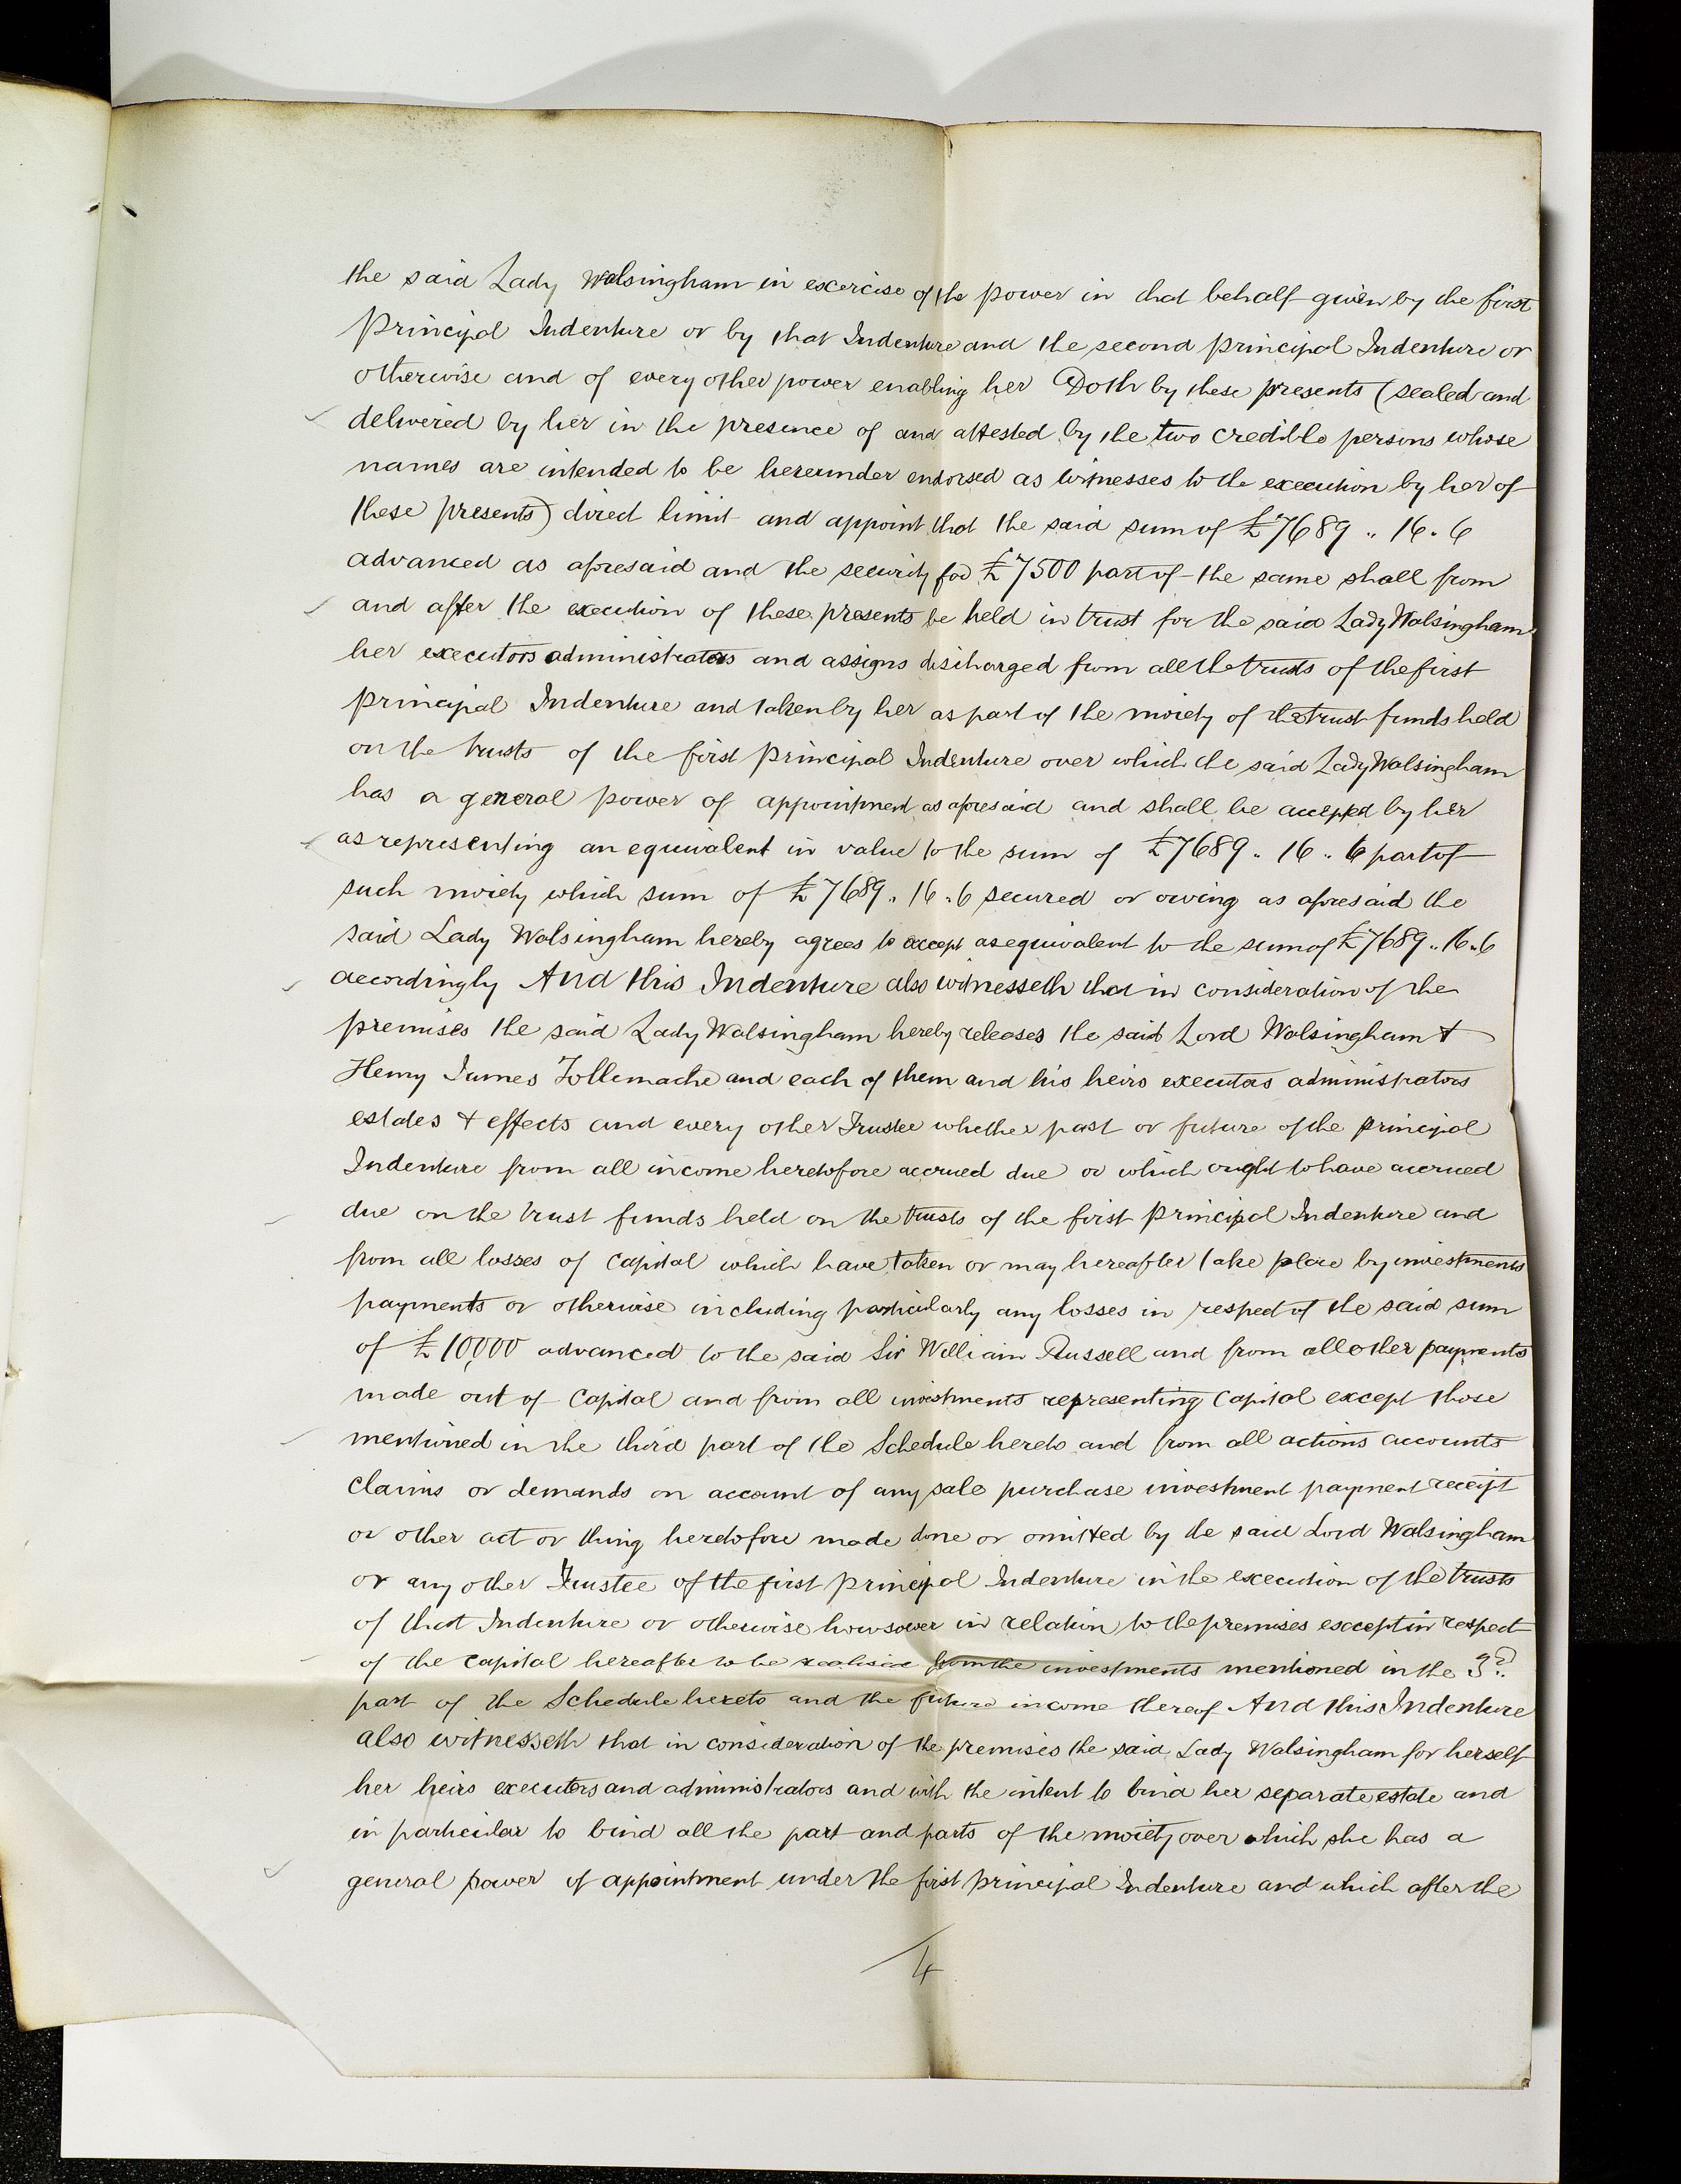 the said Lady Walsingham in exercise of the power in that behalf given by the first
Principal Indenture or by that Indenture and the second principal Indenture or
otherwise and of every other power enabling her Doth by these presents (sealed and
delivered by her in the presence of and attested by the two credible persons whose
names are intended to be hereunder endorsed as witnesses to the execution by her of
these presents) direct limit and appoint that the said sum of £7689 .. 16 . 6
advanced as aforesaid and the security for £7500 part of the same shall from
and after the execution of these presents be held in trust for the said Lady Walsingham
her executors administrators and assigns discharged from all the trusts of the first
principal Indenture and taken by her as part of the moiety of the trust funds held
on the trusts of the first principal Indenture over which the said Lady Walsingham
has a general power of appointment as aforesaid and shall be accepted by her
as representing an equivalent in value to the sum of £7689 .. 16 .. 6 part of
such moiety which sum of £7689 .. 16 .. 6 secured or owing as aforesaid the
said Lady Walsingham hereby agrees to accept as equivalent to the sum of £7689 .. 16 .. 6
accordingly And this Indenture also witnesseth that in consideration of the
premises the said Lady Walsingham hereby releases the said Lord Walsingham &
Henry James Tollemache and each of them and his heirs executors administrators
estates & effects and every other Trustee whether past or future of the principal
Indenture from all income heretofore accrued due or which ought to have accrued
due on the trust funds held on the trusts of the first principal Indenture and
from all losses of capital which have taken or may hereafter take place by investments
payments or otherwise including particularly any losses in respect of the said sum
of £10,000 advanced to the said Sir William Russell and from all other payments
made out of capital and from all investments representing capital except those
mentioned in the third part of the Schedule hereto and from all actions accounts
claims or demands on account of any sale purchase investment payment receipt
or other act or thing heretofore made done or omitted by the said Lord Walsingham
or any other Trustee of the first principal Indenture in the execution of the trusts
of that Indenture or otherwise howsoever in relation to the premises except in respect
of the capital hereafter to be realised from the investments mentioned in the 3rd.
part of the Schedule hereto and the future income thereof And this Indenture
also witnesseth that in consideration of the premises the said Lady Walsingham for herself
her heirs executors and administrators and with the intent to bind her separate estate and
in particular to bind all the part and parts of the moiety over which she has a
general power of appointment under the first principal Indenture and which after the
4